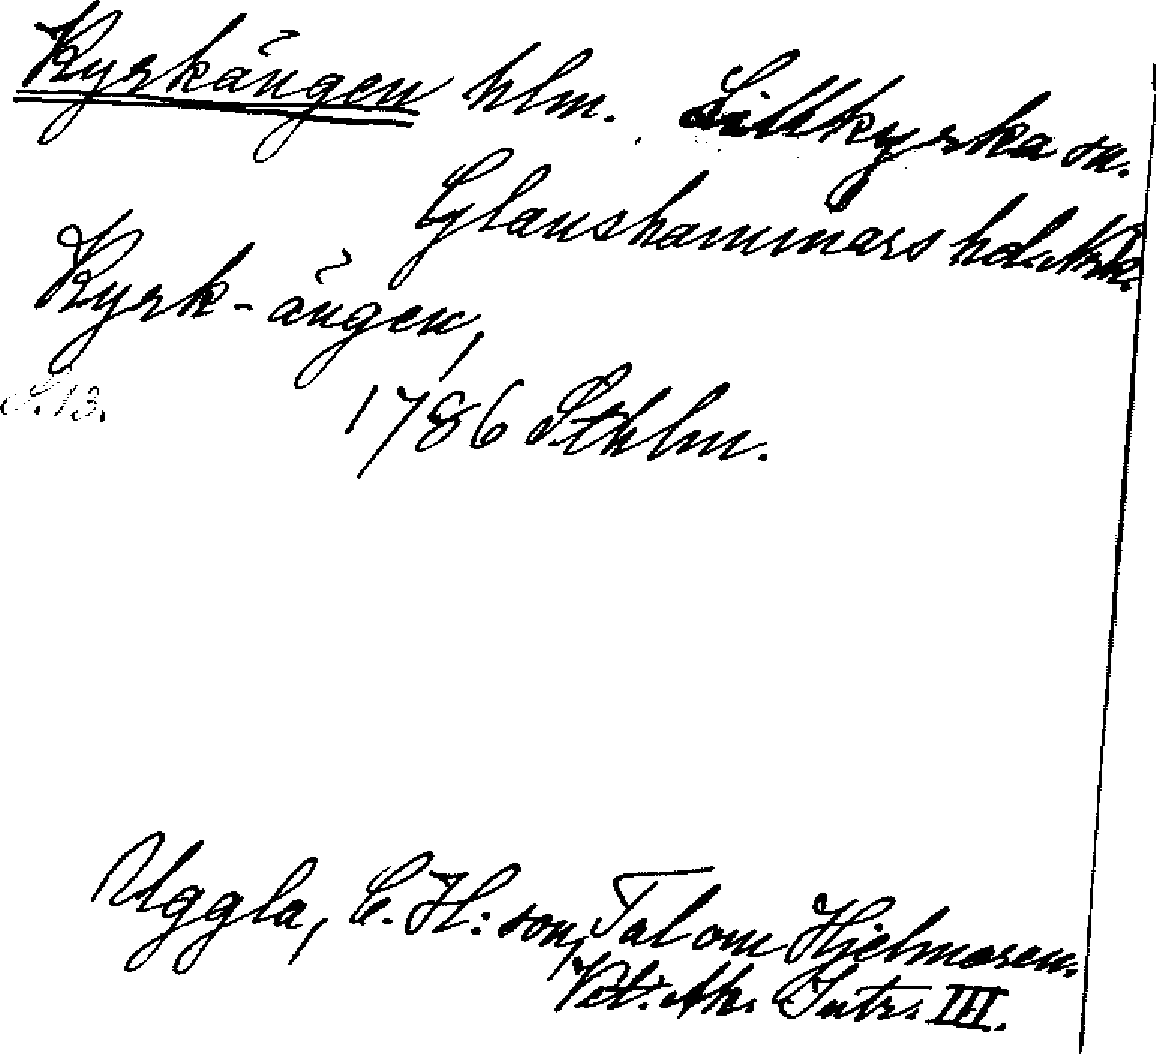 Kyrkängen hlm. Lillkyrka sn.
Glanshammars hd. Nrk.
Kyrk-ängen,
S. 13.
1786 Sthlm.
Uggla, C. H:son, Tal om Hjelmaren.
Vet. Ak. Intr. III.